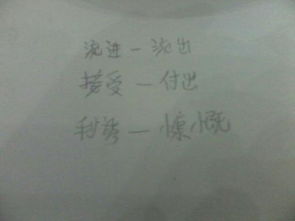 流进—流出
接受—付出
利诱—慷慨